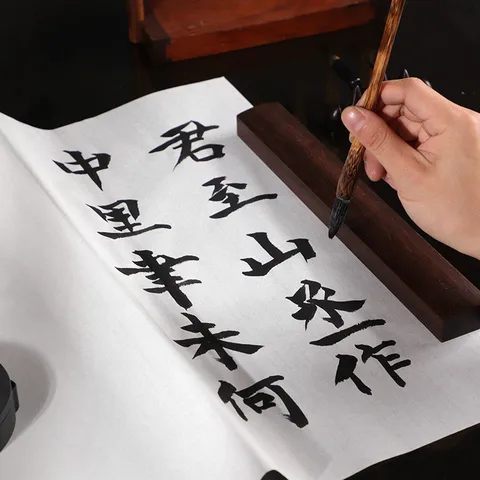 君至山丞作
中里未何